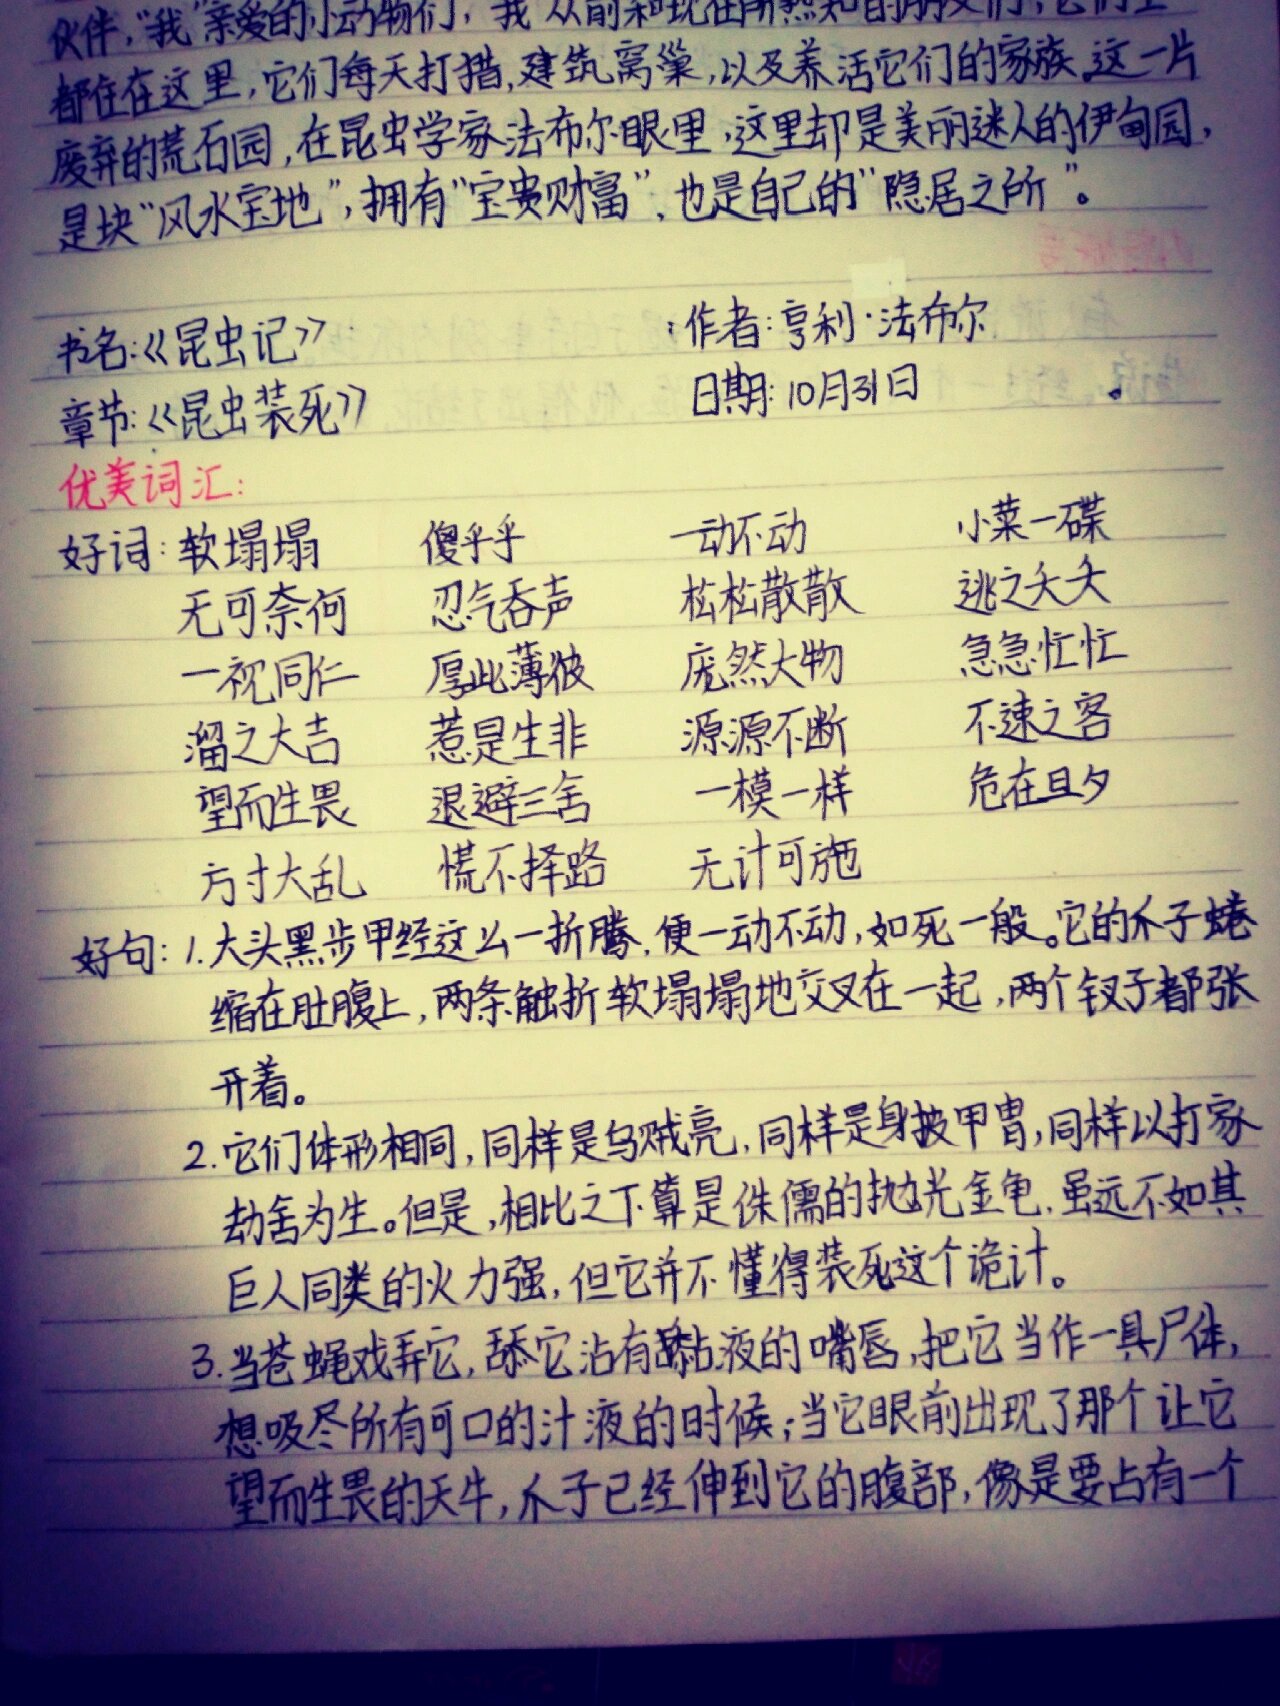 伙伴，“我”亲爱的小动物们，我从前和现在所熟知的朋友们，它们全
都住在这里，它们每天打猎，建筑窝巢，以及养活它们的家族。这一片
废弃的荒石园，在昆虫学家法布尔眼里，这里却是美丽迷人的伊甸园，
是块“风水宝地”，拥有“宝贵财富”，也是自己的“隐居之所”。
书名:《昆虫记》 作者:亨利·法布尔
章节:《昆虫装死》 日期:10月31日
优美词汇:
好词:软塌塌 傻乎乎 一动不动 小菜一碟
无可奈何 忍气吞声 松松散散 逃之夭夭
一视同仁 厚此薄彼 庞然大物 急急忙忙
溜之大吉 惹是生非 源源不断 不速之客
望而生畏 退避三舍 一模一样 危在旦夕
方寸大乱 慌不择路 无计可施
好句:1.大头黑步甲经这么一折腾,便一动不动,如死一般。它的爪子蜷
缩在肚腹上,两条触折软塌塌地交叉在一起,两个钗子都张
开着。
2.它们体形相同,同样是乌贼亮,同样是身披甲胄,同样以打家
劫舍为生。但是,相比之下算是侏儒的抛光金龟,虽远不如其
巨人同类的火力强,但它并不懂得装死这个诡计。
3.当苍蝇戏弄它,舔它沾有黏液的嘴唇,把它当作一具尸体,
想吸尽所有可口的汁液的时候;当它眼前出现了那个让它
望而生畏的天牛,爪子已经伸到它的腹部,像是要占有一个